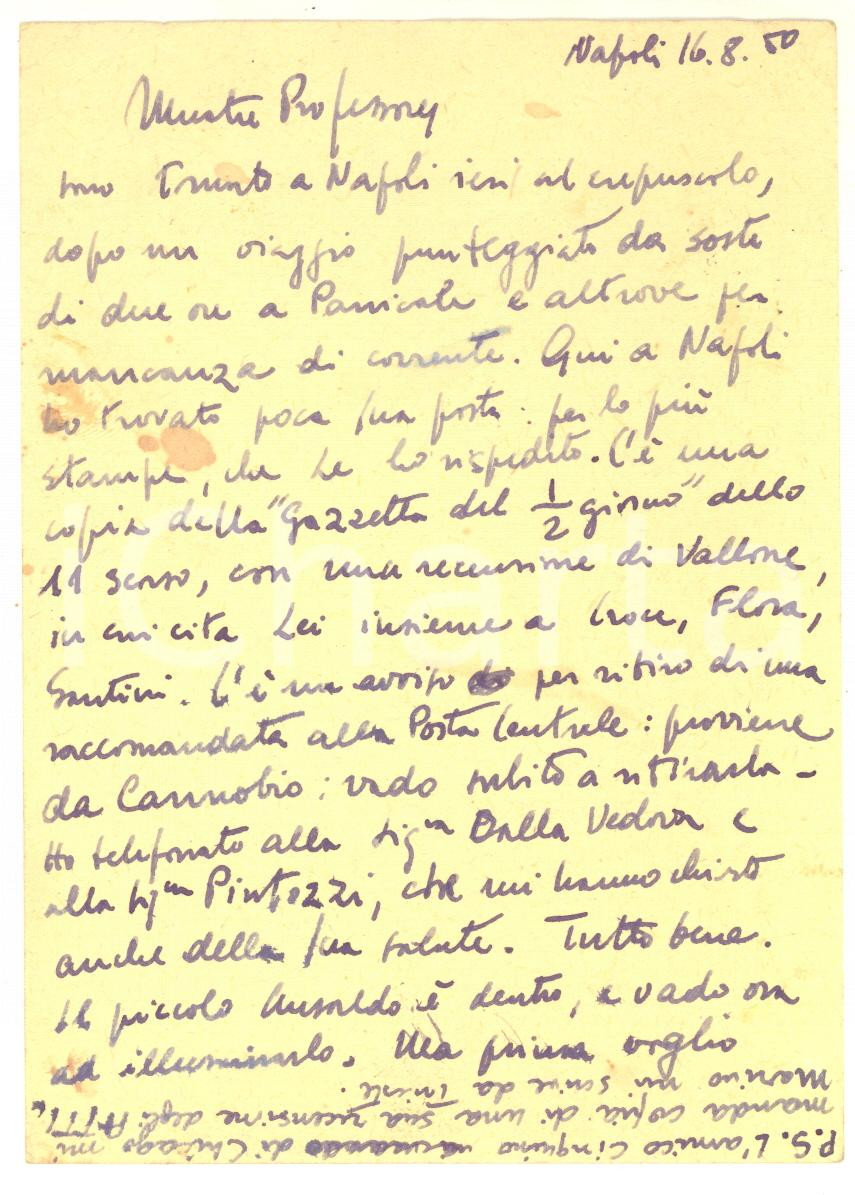 Napoli 16.8.50
Illustre Professore,
sono giunto a Napoli ieri al crepuscolo,
dopo un viaggio punteggiato da soste
di due ore a Panicale e altrove per
mancanza di corrente. Qui a Napoli
ho trovato poca Sua posta: per lo più
stampe, che Le ho rispedito. C'è una
copia della "Gazzetta del 1/2 giorno" dello
11 scorso, con una recensione di Vallone,
in cui cita Lei insieme a Croce, Flora,
Santini. C'è un avviso per ritiro di una
raccomandata alla Posta Centrale: proviene
da Cannobio: vado subito a ritirarla -
Ho telefonato alla sig.na Dalla Vedova e
alla sig.na Pintozzi, che mi hanno chiesto
anche della Sua salute. Tutto bene.
Il piccolo è dentro, e vado ora
ad illuminarlo. Ma prima voglio
P.S. L'amico Cinquino di Chicago mi
manda copia di una sua recensione degli "ATTI"
Marino mi scrive da Trieste.
iCharta